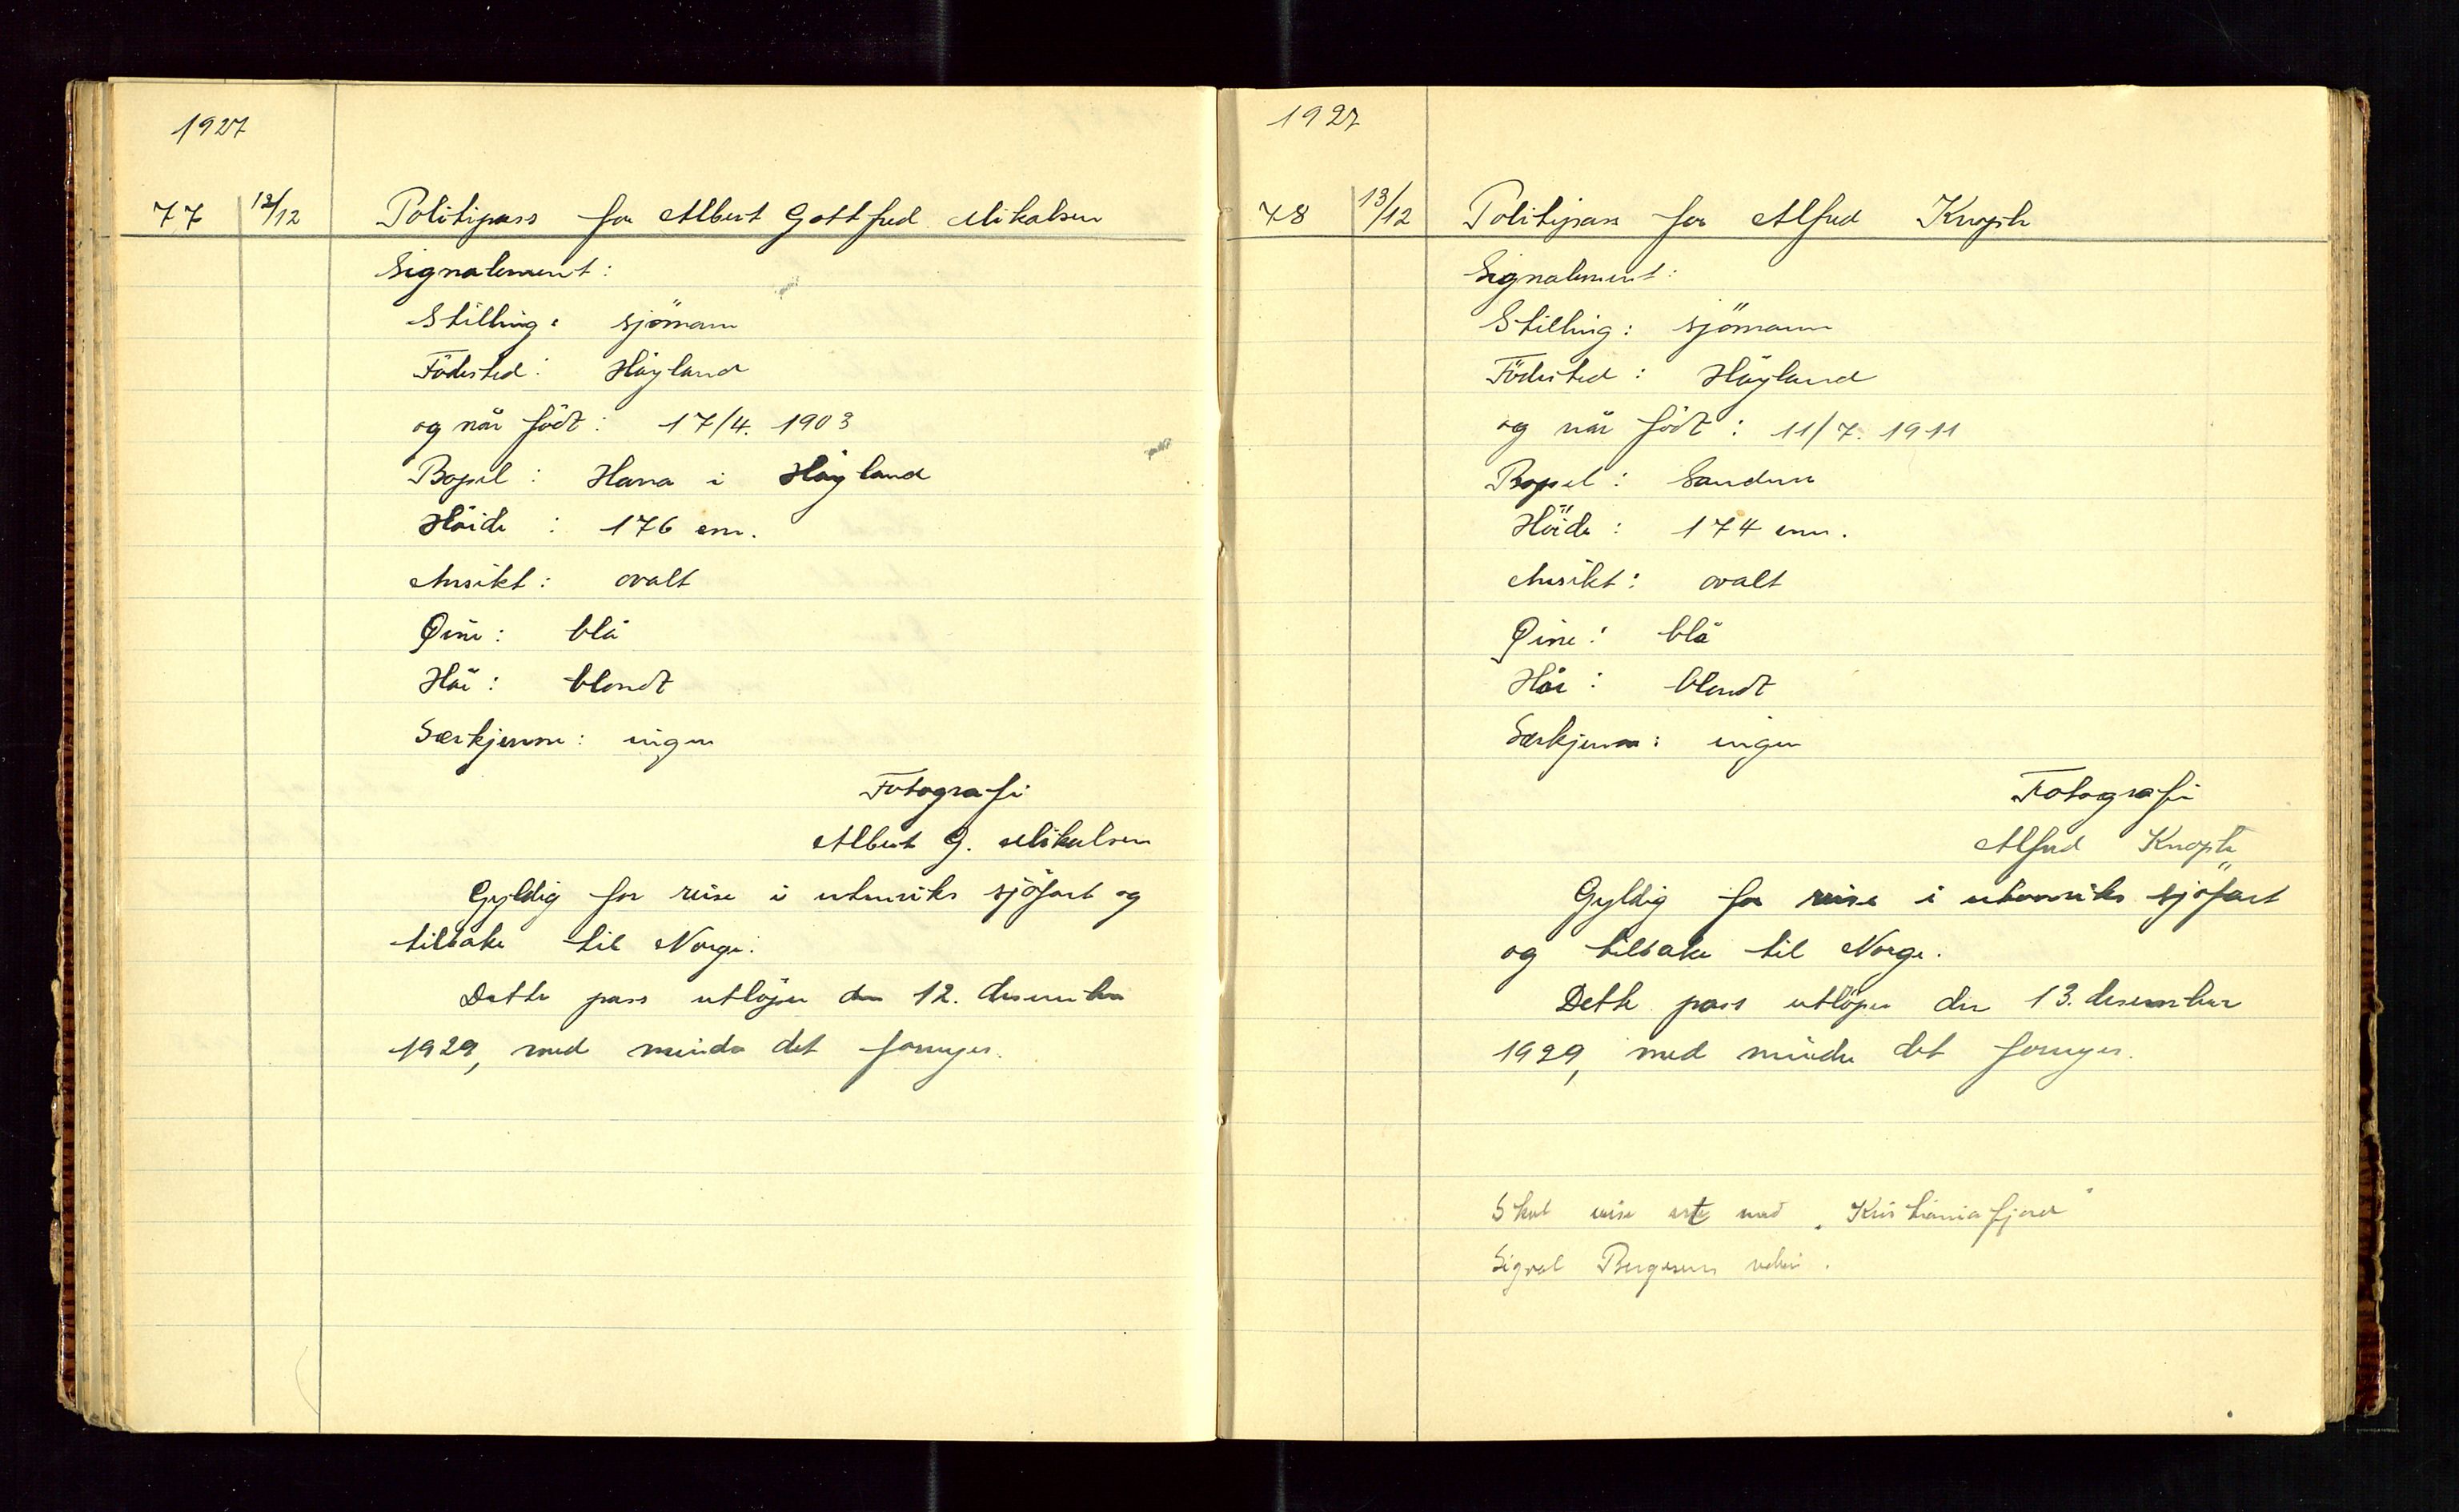 1927
77 12/12 Politipass for Albert Gottfred Mikalsen
Signalement:
Stilling: sjömann
Födested: Höyland
og når födt: 17/4. 1903
Bopel: Hana i Höyland
Höide: 176 cm.
Ansikt: ovalt
Øine: blå
Hår: blondt
Særkjenne: ingen
Fotografi
Albert G. Mikalsen
Gyldig for reise i utenriks sjöfart og
tilbake til Norge.
Dette pass utlöper den 12. desember
1929, med mindre det fornyes.
1927
78 13/12 Politipass for Alfred
Signalement:
Stilling: sjömann
Födested: Höyland
og når födt: 11/7. 1911
Bopel: Sandnes
Höide: 174 cm.
Ansikt: ovalt
Øine: blå
Hår: blondt
Særkjenne: ingen
Fotografi
Alfred
Gyldig for reise i utenriks sjöfart
og tilbake til Norge.
Dette pass utlöper den 13. desember
1929, med mindre det fornyes.
Skal reise ut med "Kristianiafjord"
Sigval Bergesens rederi.